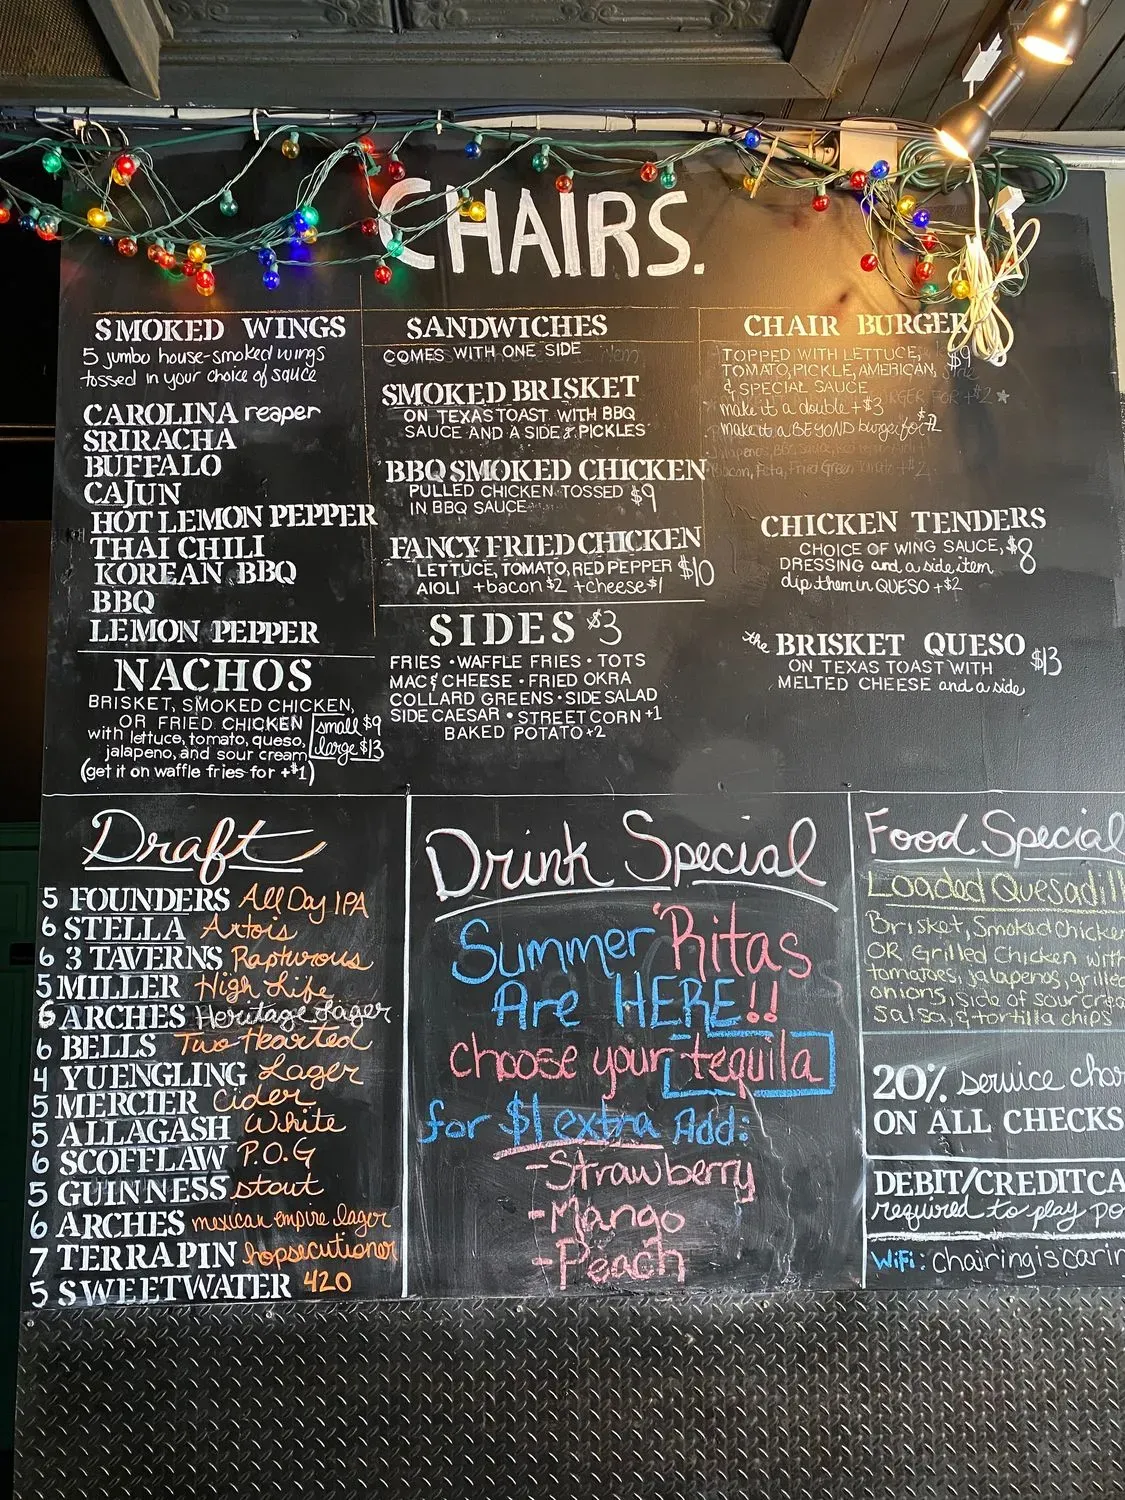 CHAIRS.
SMOKED WINGS
5 jumbo house-smoked wings
tossed in your choice of sauce
CAROLINA reaper
SRIRACHA
BUFFALO
CAJUN
HOT LEMON PEPPER
THAI CHILI
KOREAN BBQ
BBQ
LEMON PEPPER
NACHOS
BRISKET, SMOKED CHICKEN,
OR FRIED CHICKEN
with lettuce, tomato, queso,
jalapeno, and sour cream
small $9
large $13
(get it on waffle fries for +$1)
SANDWICHES
COMES WITH ONE SIDE
SMOKED BRISKET
ON TEXAS TOAST WITH BBQ
SAUCE AND A SIDE & PICKLES
BBQ SMOKED CHICKEN
PULLED CHICKEN TOSSED $9
IN BBQ SAUCE
FANCY FRIED CHICKEN
LETTUCE, TOMATO, RED PEPPER $10
AIOLI +bacon $2 +cheese $1
SIDES $3
FRIES • WAFFLE FRIES • TOTS
MAC & CHEESE • FRIED OKRA
COLLARD GREENS • SIDE SALAD
SIDE CAESAR • STREET CORN +1
BAKED POTATO +2
CHAIR BURGER
TOPPED WITH LETTUCE, $9
TOMATO, PICKLE, AMERICAN,
& SPECIAL SAUCE
make it a double +$3
make it a BEYOND burger for +$2
CHICKEN TENDERS
CHOICE OF WING SAUCE, $8
DRESSING and a side item
dip them in QUESO +$2
the BRISKET QUESO $13
ON TEXAS TOAST WITH
MELTED CHEESE and a side
Draft
5 FOUNDERS All Day IPA
6 STELLA Artois
6 3 TAVERNS Rapturous
5 MILLER High Life
6 ARCHES Heritage Lager
6 BELLS Two Hearted
4 YUENGLING Lager
5 MERCIER Cider
5 ALLAGASH White
6 SCOFFLAW P.O.G
5 GUINNESS stout
6 ARCHES mexican empire lager
7 TERRAPIN hopsecutioner
5 SWEETWATER 420
Drink Special
Summer 'Ritas
Are HERE!!
choose your tequila
for $1 extra Add:
-Strawberry
-Mango
-Peach
Food Special
Loaded Quesadill
Brisket, Smoked Chicken
OR Grilled Chicken with
tomatoes, jalapenos, grilled
onions, side of sour crea
salsa, & tortilla chips
20% service char
ON ALL CHECKS
DEBIT/CREDIT CA
required to play po
WiFi: chairingiscarin